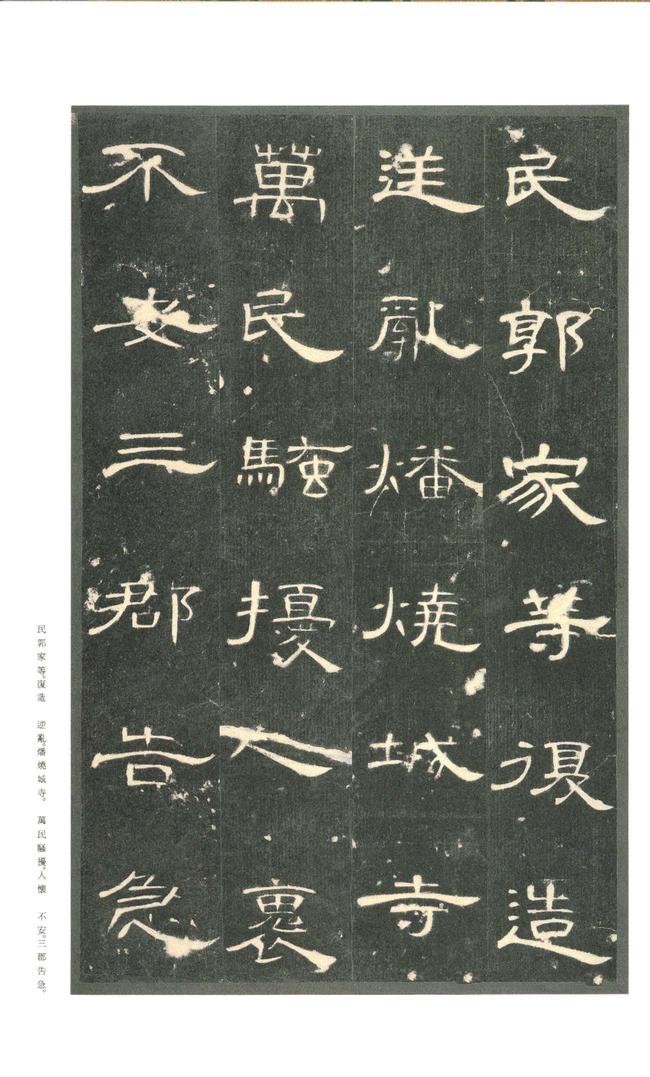 民郭家等復造
逆亂燔燒城寺
萬民騷擾人褱
不安三郡告急
民郭家等。復造　逆亂。燔燒城寺。　萬民騷擾。人懷　不安。三郡告急。